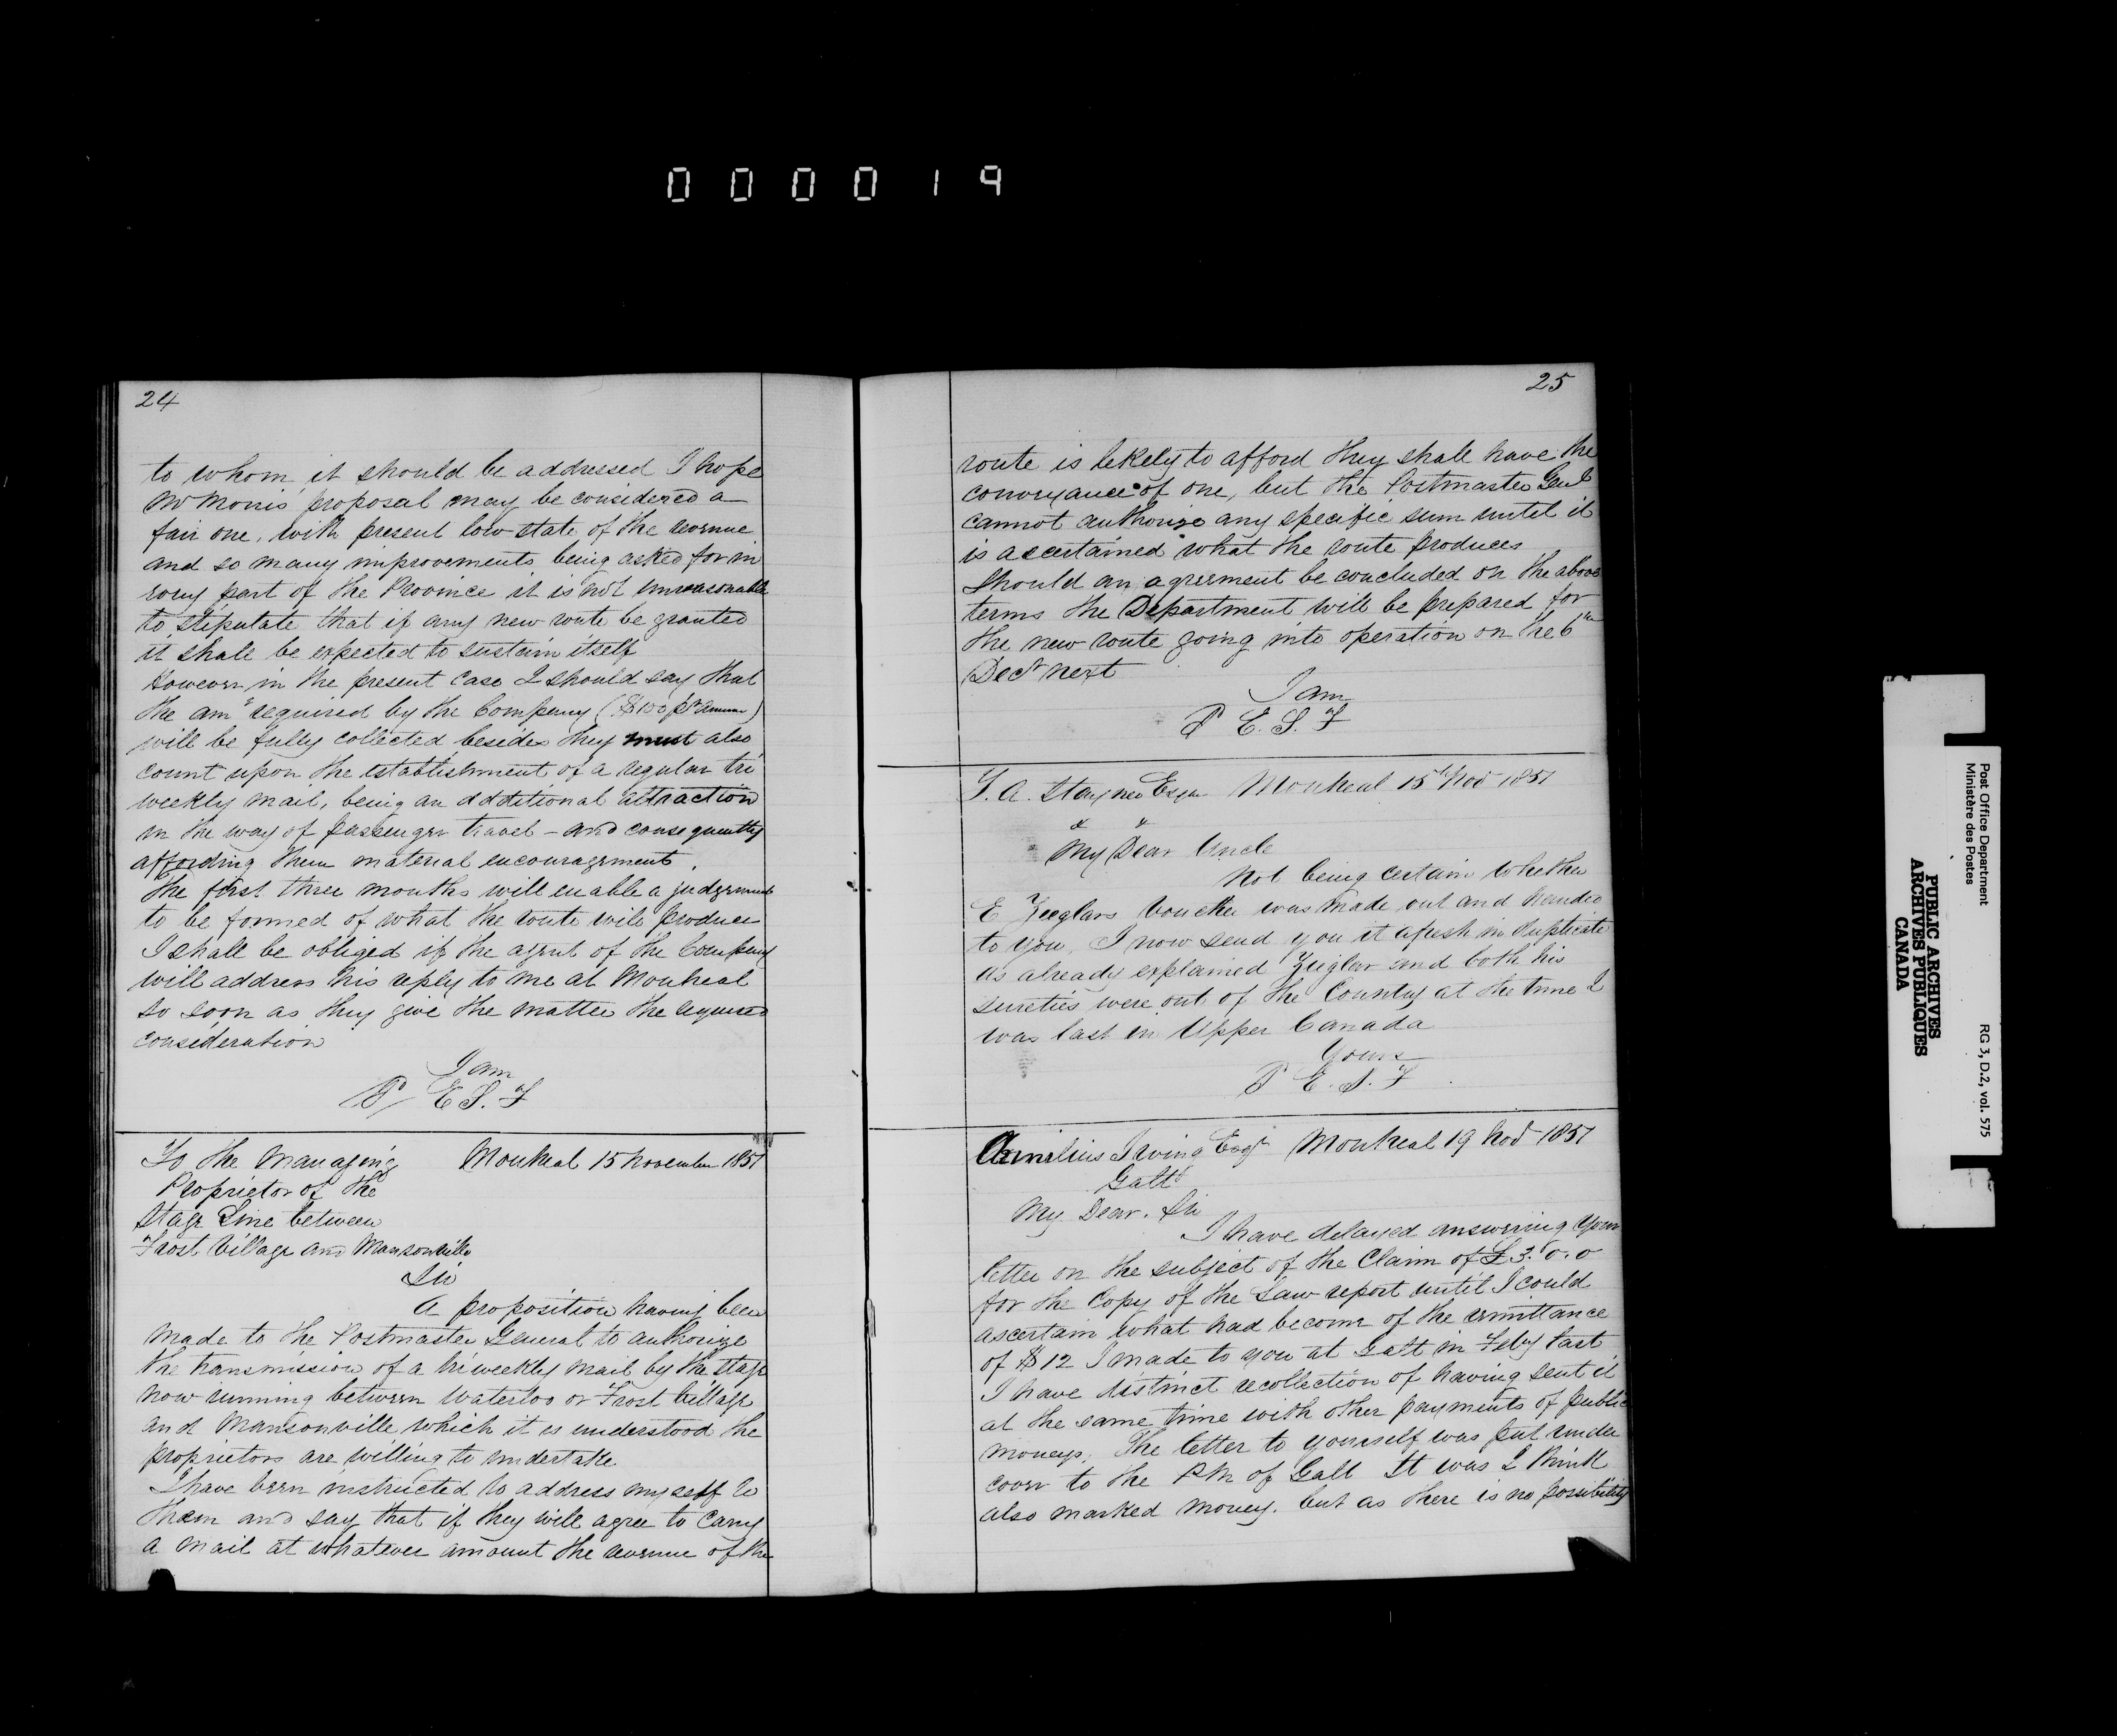 000019
24
to whom it should be addressed I hope
Mr Morris proposal may be considered a
fair one, with present low state of the revenue
and so many improvements being asked for in
every part of the Province it is not unreasonable
to stipulate that if any new route be granted
it shall be expected to sustain itself
However in the present case I should say that
the amt required by the Company ($100 pr annum)
will be fully collected besides they must also
count upon the establishment of a regular tri
weekly mail, being an additional attraction
in the way of passenger travel - and consequently
affording them material encouragement.
The first three months will enable a judgement
to be formed of what the route will produce
I shall be obliged if the agent of the Company
will address his reply to me at Montreal
so soon as they give the matter the required
consideration
I am
P E S. F
To the Managing Montreal 15 November 1851
Proprietor of the
Stage Line between
Frost Village and Mansonville
Sir
A proposition having been
made to the Postmaster General to authorize
the transmission of a triweekly mail by the stage
now running between Waterloo or Frost Village
and Mansonville which it is understood the
proprietors are willing to undertake
I have been instructed to address myself to
them and say that if they will agree to carry
a mail at whatever amount the revenue of the
25
route is likely to afford they shall have the
conveyance of one, but the Postmaster Genl
cannot authorize any specific sum until it
is ascertained what the route produces
Should an agreement be concluded on the above
terms the Department will be prepared for
the new route going into operation on the 6th
Decr next
I am
P E. S. F
T. A. Stayner Esqr Montreal 15th Nov 1851
My Dear Uncle
Not being certain whether
E Zeeglars Voucher was made out and handed
to you, I now send you it afresh in duplicate
As already explained Zeiglar and both his
sureties were out of the Country at the time I
was last in Upper Canada
Yours
P E. S. F
Aemilius Irving Esqr Montreal 19 Nov 1851
Galt
My Dear Sir
I have delayed answering your
letter on the subject of the Claim of £3.0.0
for the Copy of the Law report until I could
ascertain what had become of the remittance
of $12 I made to you at Galt in Feby last
I have distinct recollection of having sent it
at the same time with other payments of public
moneys. The letter to yourself was put under
cover to the PM of Galt It was I think
also marked money. but as there is no possibility
Post Office Department
Ministère des Postes
RG 3, D.2, vol. 575
PUBLIC ARCHIVES
ARCHIVES PUBLIQUES
CANADA